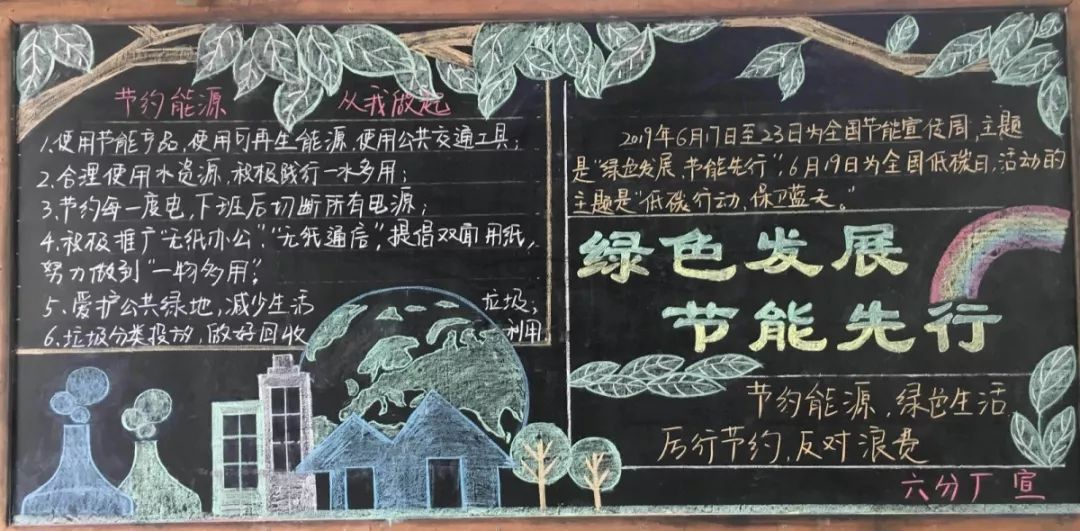 节约能源 从我做起
1.使用节能产品,使用可再生能源,使用公共交通工具;
2.合理使用水资源,积极践行一水多用;
3.节约每一度电,下班后切断所有电源;
4.积极推广"无纸办公"、"无纸通信",提倡双面用纸,
努力做到"一物多用";
5.爱护公共绿地,减少生活 垃圾;
6.垃圾分类投放,做好回收 利用
2019年6月17日至23日为全国节能宣传周,主题
是"绿色发展,节能先行",6月19日为全国低碳日,活动的
主题是"低碳行动,保卫蓝天"。
绿色发展
节能先行
节约能源,绿色生活,
厉行节约,反对浪费
六分厂宣